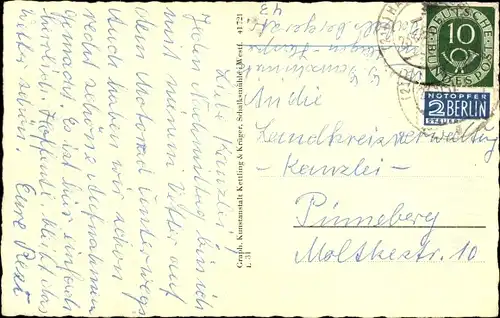 Liebe Kanzlei!
Jeden Nachmittag bin ich
mit meinem Vater auf
dem Motorrad unterwegs.
Auch haben wir schon
recht schöne Aufnahmen
gemacht. Es ist hier einfach
herrlich. Hoffentl. bleibt das
Wetter schön.
Eure Rosi
Graph. Kunstanstalt Kettling & Krüger, Schalksmühle (Westf. 41721
L 31
43
DEUTSCHE BUNDESPOST
10
NOTOPFER
2 BERLIN
STEUERMARKE
An die
Landkreisverwaltung
- Kanzlei -
Pinneberg
Moltkestr. 10